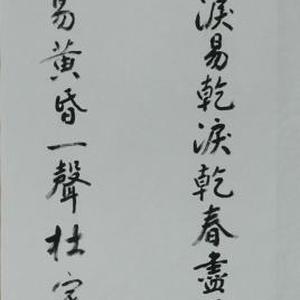 淚易乾淚乾春盡
易黃昏一聲杜宇